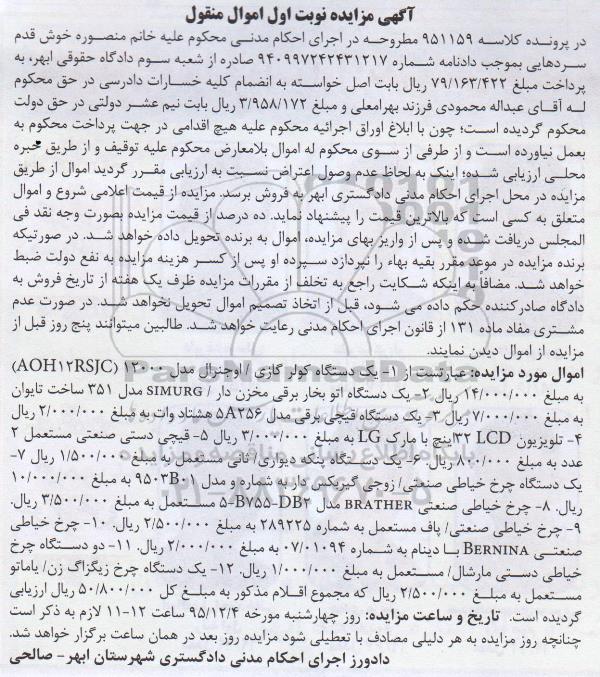 آگهی مزایده نوبت اول اموال منقول
در پرونده کلاسه ۹۵۱۱۵۹ مطروحه در اجرای احکام مدنی محکوم علیه خانم منصوره خوش قدم
سردهایی بموجب دادنامه شماره ۹۴۰۹۹۷۲۴۲۴۳۱۲۱۷ صادره از شعبه سوم دادگاه حقوقی ابهر، به
پرداخت مبلغ ۷۹/۱۶۳/۴۲۲ ریال بابت اصل خواسته به انضمام کلیه خسارات دادرسی در حق محکوم
له آقای عبداله محمودی فرزند بهرامعلی و مبلغ ۳/۹۵۸/۱۷۲ ریال بابت نیم عشر دولتی در حق دولت
محکوم گردیده است؛ چون با ابلاغ اوراق اجرائیه محکوم علیه هیچ اقدامی در جهت پرداخت محکوم به
بعمل نیاورده است و از طرفی از سوی محکوم له اموال بلامعارض محکوم علیه توقیف و از طریق خبره
محلی ارزیابی شده؛ اینک به لحاظ عدم وصول اعتراض نسبت به ارزیابی مقرر گردید اموال از طریق
مزایده در محل اجرای احکام مدنی دادگستری ابهر به فروش برسد. مزایده از قیمت اعلامی شروع و اموال
متعلق به کسی است که بالاترین قیمت را پیشنهاد نماید. ده درصد از قیمت مزایده بصورت وجه نقد فی
المجلس دریافت شده و پس از واریز بهای مزایده، اموال به برنده تحویل داده خواهد شد. در صورتیکه
برنده مزایده در موعد مقرر بقیه بهاء را نپردازد سپرده او پس از کسر هزینه مزایده به نفع دولت ضبط
خواهد شد. مضافاً به اینکه شکایت راجع به تخلف از مقررات مزایده ظرف یک هفته از تاریخ فروش به
دادگاه صادرکننده حکم داده می شود، قبل از اتخاذ تصمیم اموال تحویل نخواهد شد. در صورت عدم
مشتری مفاد ماده ۱۳۱ از قانون اجرای احکام مدنی رعایت خواهد شد. طالبین میتوانند پنج روز قبل از
مزایده از اموال دیدن نمایند.
اموال مورد مزایده: عبارتست از ۱- یک دستگاه کولر گازی / اوجنرال مدل ۱۲۰۰۰ (AOH۱۲RSJC)
به مبلغ ۱۴/۰۰۰/۰۰۰ ریال ۲- یک دستگاه اتو بخار برقی مخزن دار / SIMURG مدل ۳۵۱ ساخت تایوان
به مبلغ ۷/۰۰۰/۰۰۰ ریال ۳- یک دستگاه قیچی برقی مدل ۵A۲۵۶ هشتاد وات به مبلغ ۲/۰۰۰/۰۰۰ ریال
۴- تلویزیون LCD ۳۲اینچ با مارک LG به مبلغ ۳/۰۰۰/۰۰۰ ریال ۵- قیچی دستی صنعتی مستعمل ۲
عدد به مبلغ ۸۰۰/۰۰۰ ریال. ۶- یک دستگاه پنکه دیواری/ ثانی مستعمل به مبلغ ۱/۵۰۰/۰۰۰ ریال ۷-
یک دستگاه چرخ خیاطی صنعتی/ زوجی گیربکس دار به شماره و مدل ۹۵۰۳B۰۱ به مبلغ ۱۰/۰۰۰/۰۰۰
ریال. ۸- چرخ خیاطی صنعتی BRATHER مدل ۵-B۷۵۵-DB۲ مستعمل به مبلغ ۳/۵۰۰/۰۰۰ ریال.
۹- چرخ خیاطی صنعتی/ پاف مستعمل به شماره ۲۸۹۲۲۵ به مبلغ ۲/۵۰۰/۰۰۰ ریال. ۱۰- چرخ خیاطی
صنعتی BERNINA با دینام به شماره ۰۷/۰۱۰۹۴ به مبلغ ۲/۰۰۰/۰۰۰ ریال. ۱۱- دو دستگاه چرخ
خیاطی دستی مارشال/ مستعمل به مبلغ ۱/۰۰۰/۰۰۰ ریال. ۱۲- یک دستگاه چرخ زیگزاگ زن/ یاماتو
مستعمل به مبلغ ۲/۵۰۰/۰۰۰ ریال که مجموع اقلام مذکور به مبلغ کل ۵۰/۸۰۰/۰۰۰ ریال ارزیابی
گردیده است. تاریخ و ساعت مزایده: روز چهارشنبه مورخه ۹۵/۱۲/۴ ساعت ۱۲-۱۱ لازم به ذکر است
چنانچه روز مزایده به هر دلیلی مصادف با تعطیلی شود مزایده روز بعد در همان ساعت برگزار خواهد شد.
دادورز اجرای احکام مدنی دادگستری شهرستان ابهر- صالحی